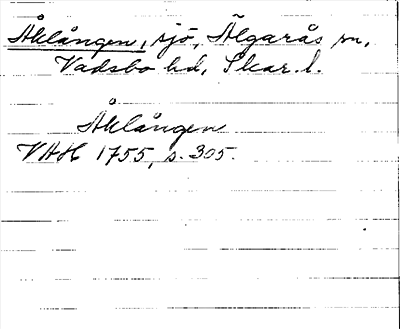 Åklången, sjö, Älgarås sn,
Vadsbo hd, Skar. l.
Åklången
VAH 1755, s. 305.